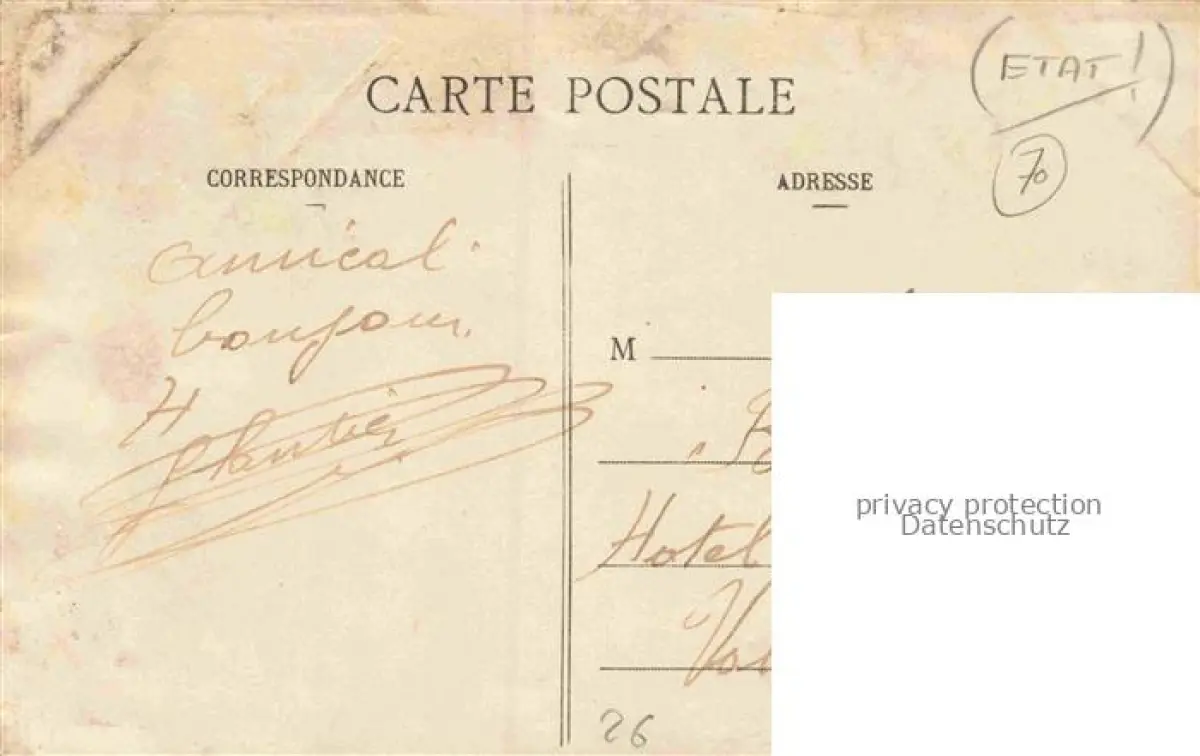 CARTE POSTALE
(ETAT!)
70
CORRESPONDANCE
amical
bonjour
H
ADRESSE
M
Hotel
26
privacy protection
Datenschutz